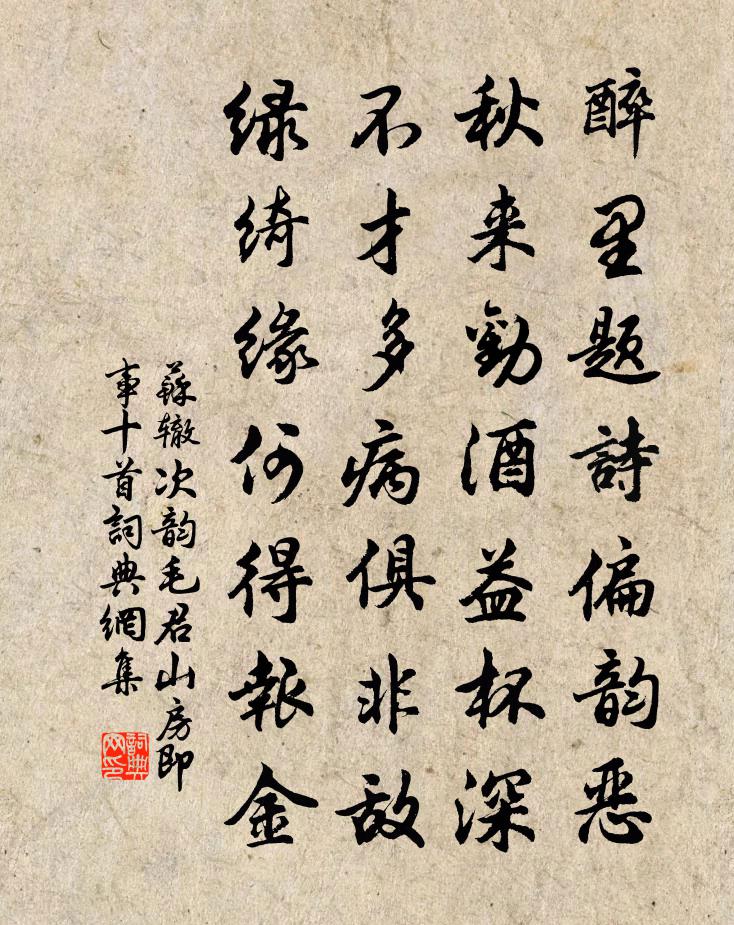 醉里题詩偏韵恶
秋来勸酒益杯深
不才多病俱非敌
绿绮缘何得報金
蘇辙次韵毛君山房即
事十首詞典網集
詞典
网印